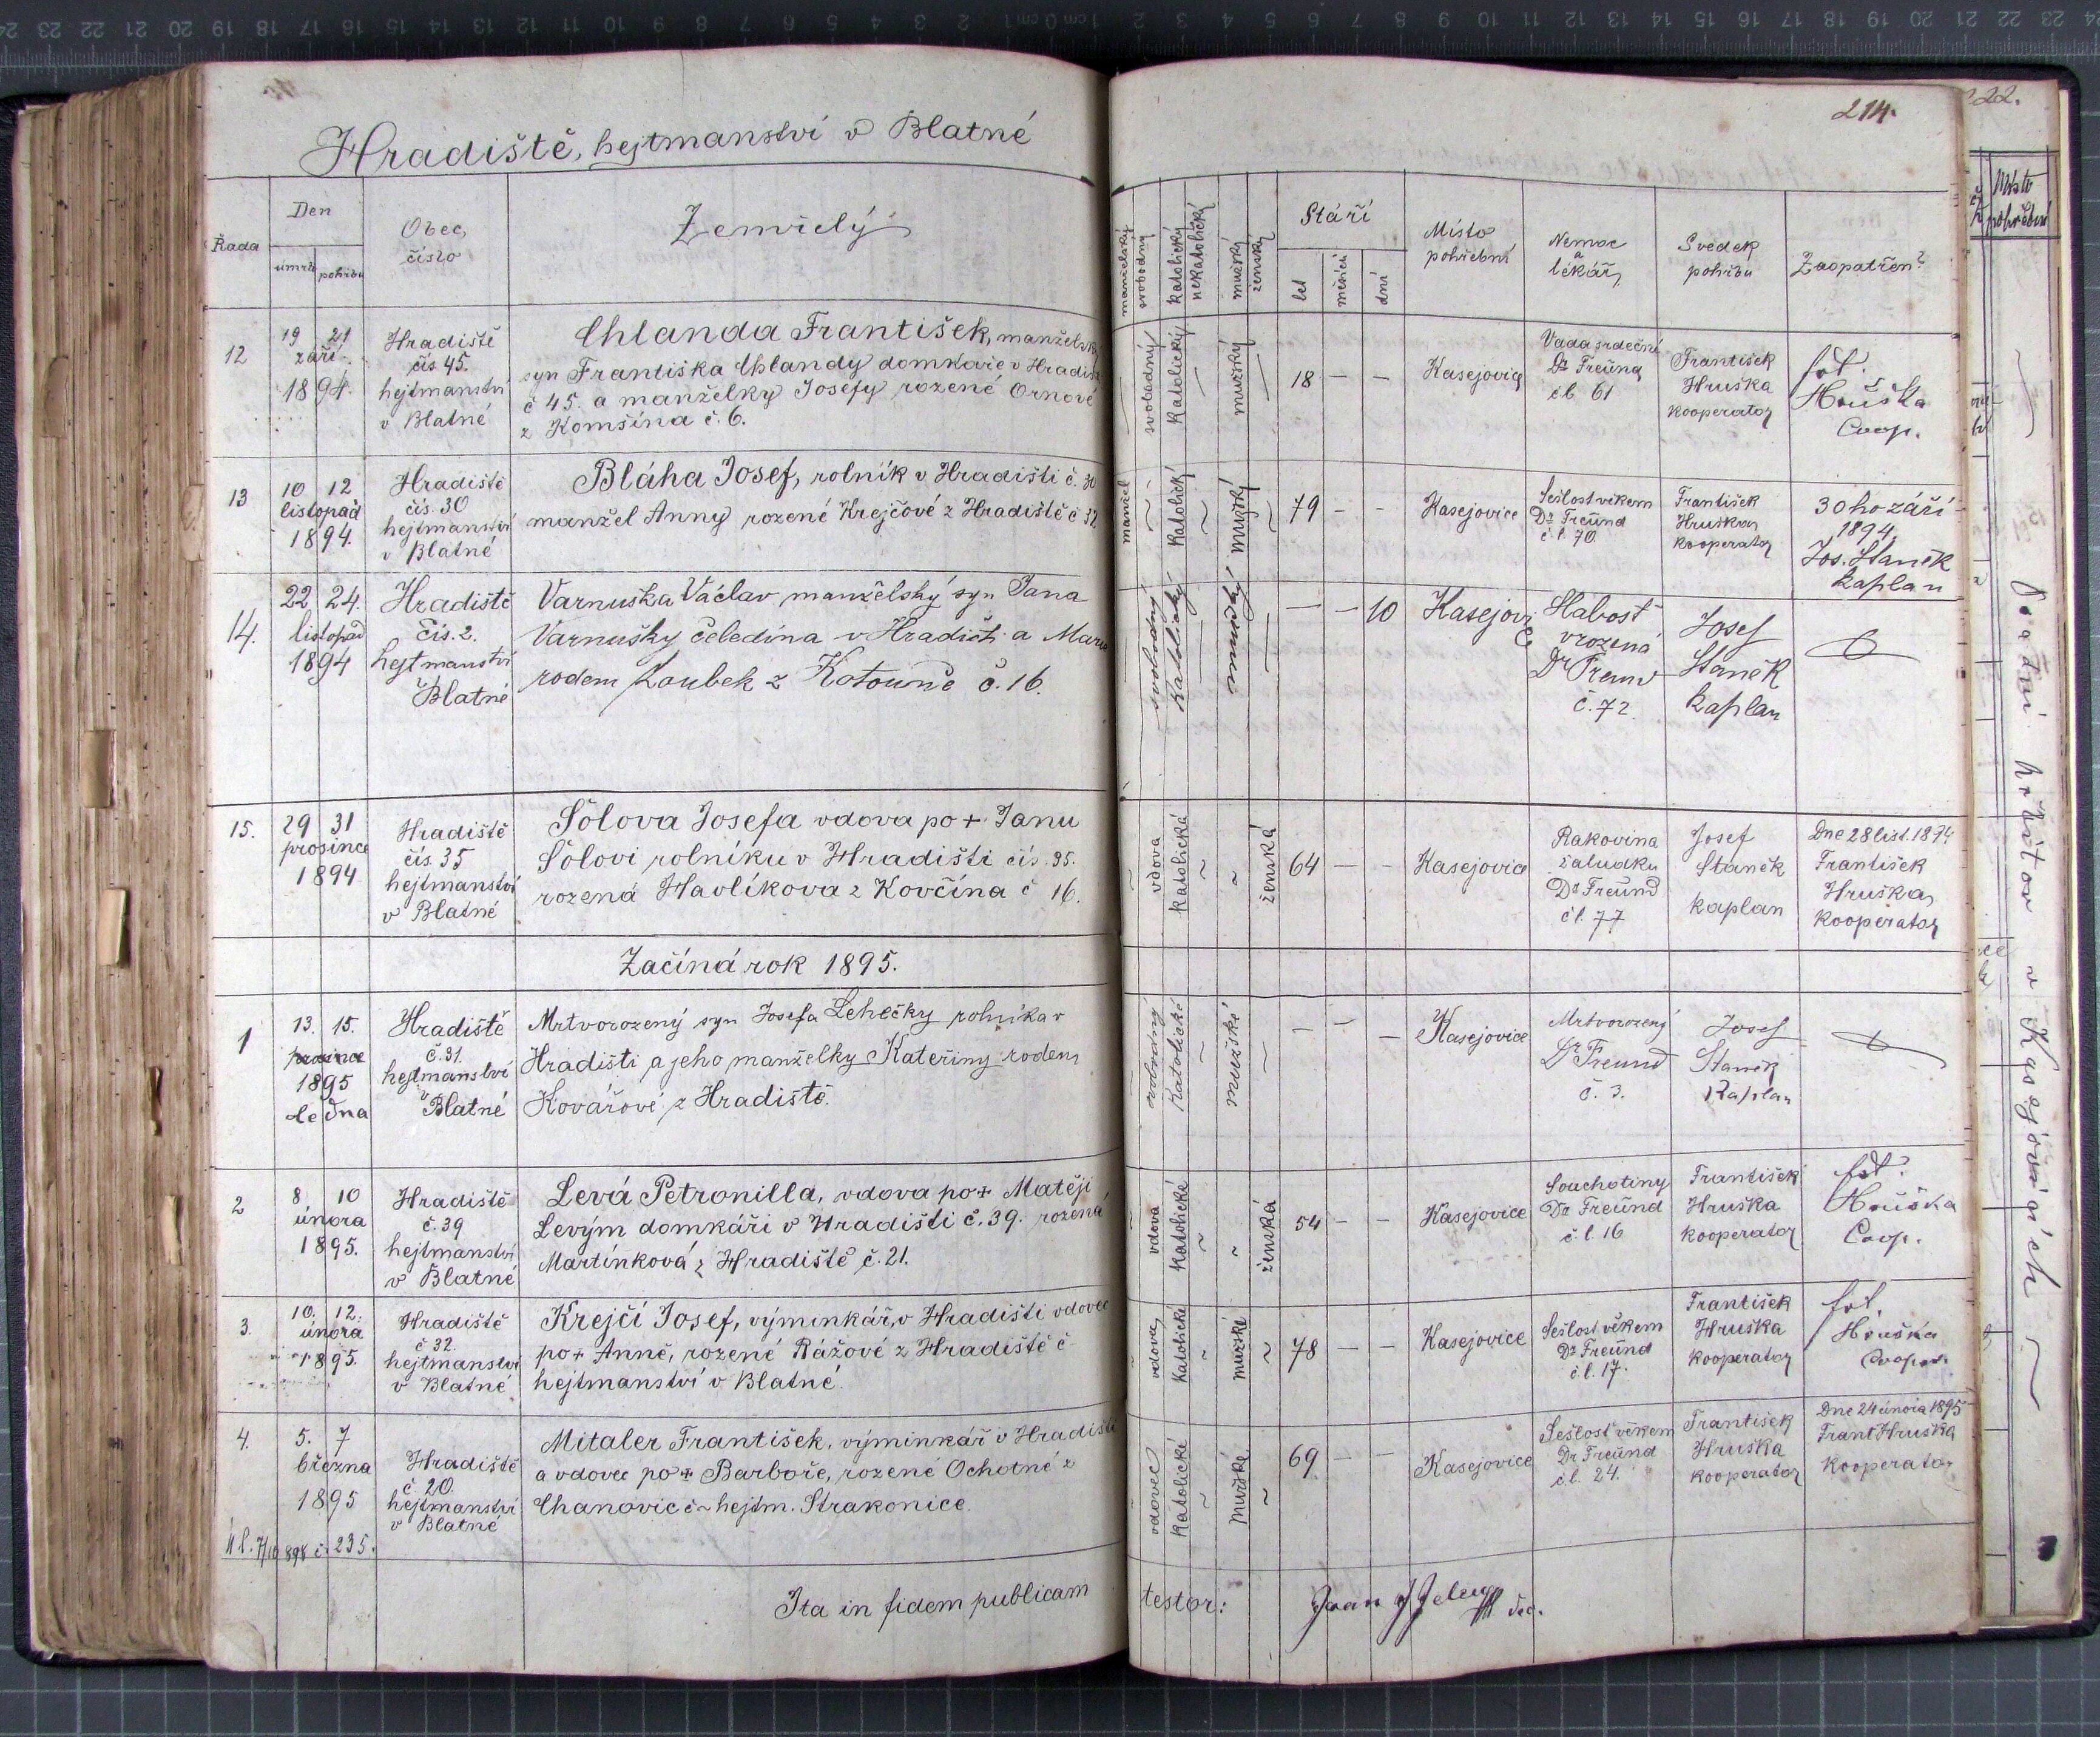 Hradiště, hejtmanství v Blatné
214.
222.
Řada
Den
úmrtí
pohřbu
Obec,
číslo
Zemřelý
manželský
svobodný
katolický
nekatolický
mužský
ženský
Stáří
let
měsíců
dní
Místo
pohřební
Nemoc
a
lékař
Svědek
pohřbu
Zaopatřen?
Místo
pohřební
12
19 21
září
1894.
Hradiště
čís. 45.
hejtmanství
v Blatné
Chlanda František, manželský
syn Františka Chlandy domkaře v Hradišti
č 45. a manželky Josefy rozené Ornové
z Komšína č. 6.
svobodný
Katolický
mužský
18 — —
Kasejovice
Vada srdeční
Dr Freünd
č.l. 61
František
Hruška
kooperator
Hruška
Coop.
13
10 12
listopad
1894.
Hradiště
čís. 30
hejtmanství
v Blatné
Bláha Josef, rolník v Hradišti č. 30
manžel Anny rozené Krejčové z Hradiště č 32.
manžel
Katolický
mužský
79 - -
Kasejovice
Sešlost věkem
Dr Freünd
č l. 70.
František
Hruška
kooperator
30ho září
1894.
Jos. Staněk
kaplan
14.
22 24.
listopad
1894
Hradiště
čís. 2.
hejtmanství
v
Blatné
Varnuška Václav, manželský syn Jana
Varnušky čeledína v Hradišti a Marie
rodem Loubek z Kotouně č. 16.
svobodný
Katolický
mužský
— — 10
Kasejovi
ce
Slabost
vrozená
Dr Freund
č. 72.
Josef
Staněk
kaplan
15.
29 31
prosince
1894
Hradiště
čís. 35
hejtmanství
v Blatné
Šolova Josefa vdova po + Janu
Šolovi rolníku v Hradišti čís. 35.
rozená Havlíkova z Kovčína č 16.
vdova
Katolická
ženská
64 — -
Kasejovice
Rakovina
žaludku
Dr Freünd
č l. 77
Josef
Staněk
kaplan
Dne 28 list. 1894
František
Hruška
kooperator
Začíná rok 1895.
1
13. 15.
prosince
1895
ledna
Hradiště
č. 31.
hejtmanství
v
Blatné
Mrtvorozený syn Josefa Lehečky rolníka v
Hradišti a jeho manželky Kateřiny rodem
Kovářové z Hradiště.
Katolické
mužské
— — —
Kasejovice
Mrtvorozený
Dr Freund
č. 3.
Josef
Staněk
Kaplan
2
8 10
února
1895.
Hradiště
č. 39
hejtmanství
v Blatné
Levá Petronilla, vdova po + Matěji
Levým domkáři v Hradišti č. 39. rozená
Martínková z Hradiště č. 21.
vdova
Katolické
ženská
54 - -
Kasejovice
Souchotiny
Dr Freünd
č. l. 16
František
Hruška
kooperator
Hruška
Coop.
3.
10. 12.
února
1895.
Hradiště
č 32.
hejtmanství
v Blatné
Krejčí Josef, výminkář, v Hradišti vdovec
po + Anně, rozené Rážové z Hradiště č
hejtmanství v Blatné.
vdovec
Katolické
mužské
78 — —
Kasejovice
Sešlost věkem
Dr Freünd
č l. 17.
František
Hruška
kooperator
Hruška
Cooper.
4.
5. 7
března
1895
Hradiště
č 20.
hejtmanství
v Blatné
Mitaler František, výminkář v Hradišti
a vdovec po + Barboře, rozené Ochotné z
Chanovic č ~ hejtm. Strakonice.
vdovec
Katolické
Mužské
69 — —
Kasejovice
Sešlost věkem
Dr Freünd
č.l. 24.
František
Hruška
kooperator
Dne 24 února 1895
Frant Hruška
kooperator
čl. 7/10 898 č. 235.
Ita in fidem publicam
testor:
děc.
hřbitov v Kasejovicích